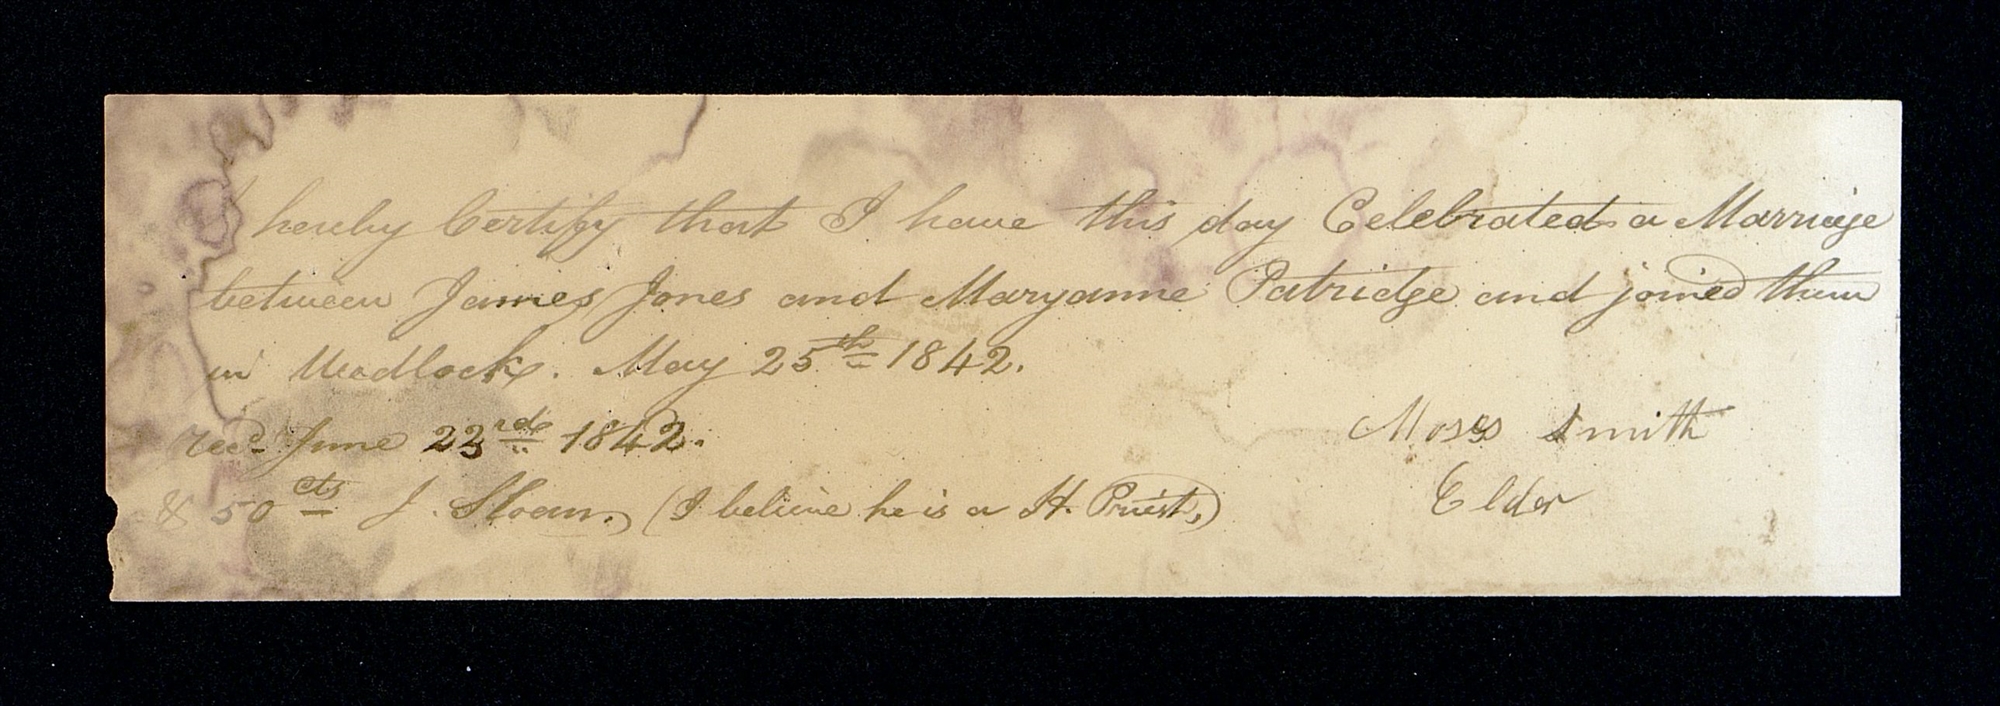 hereby Certify that I have this day Celebrated a Marriage
between James Jones and Maryanne Patridge and joined them
in Weadlock. May 25th 1842.
recd June 23rd 1842.
Moses Smith
& 50 cts J. Sloan. (I believe he is a H. Priest.)
Elder